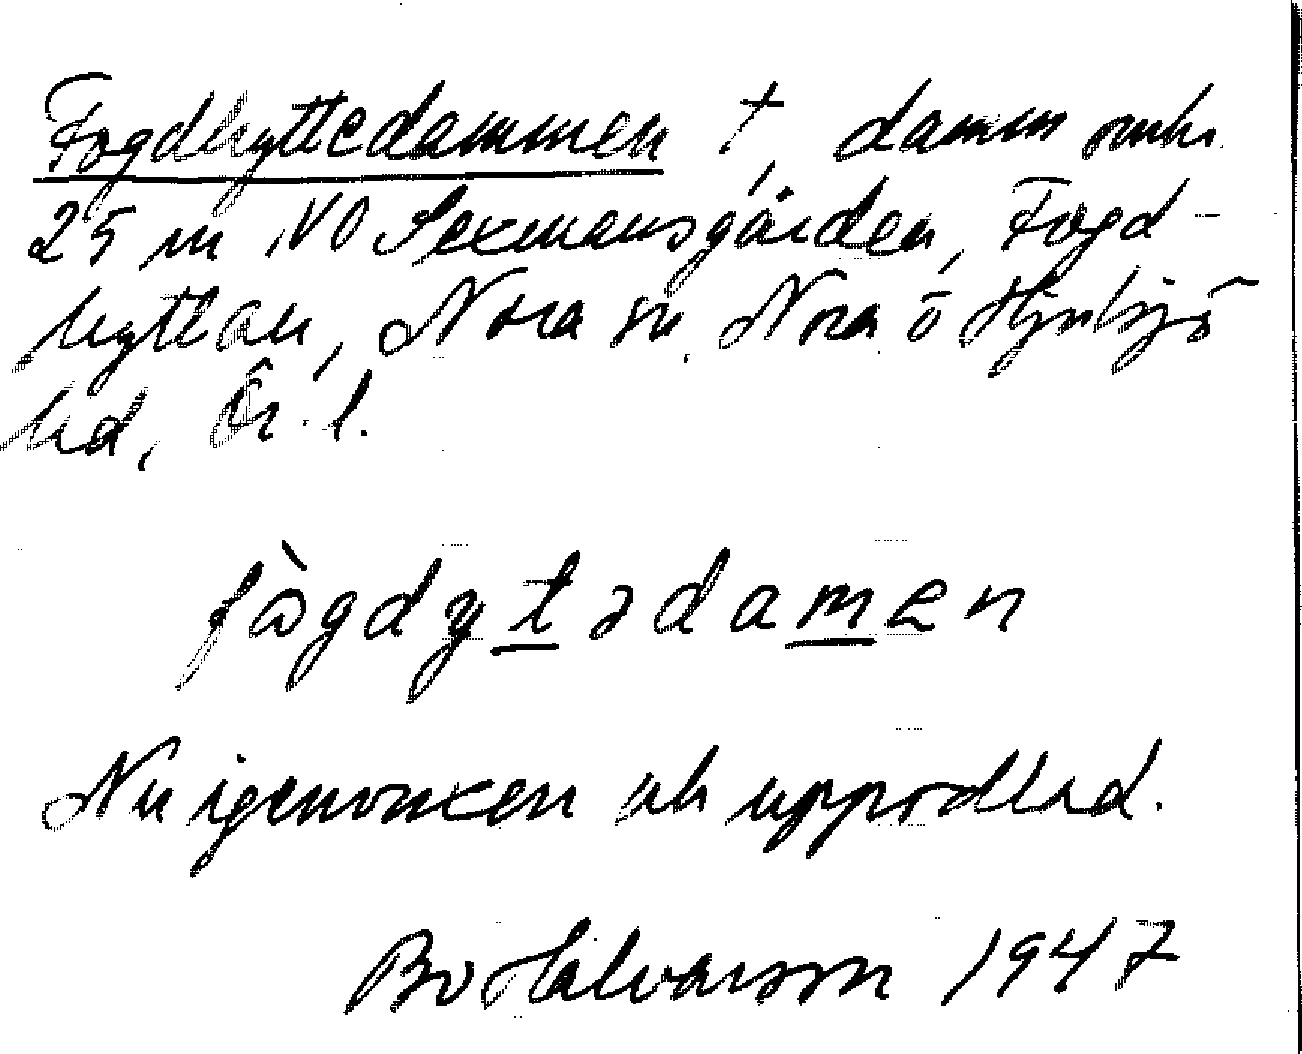 Fogdhyttedammen †, damm omkr.
25 m NO Sexmansgården, Fogd-
hyttan, Nora sn. Nora o Hjulsjö
bd, Ör. l.
fògdytədamen
Nu igenvuxen och uppodlad.
Bo Halvarson 1947